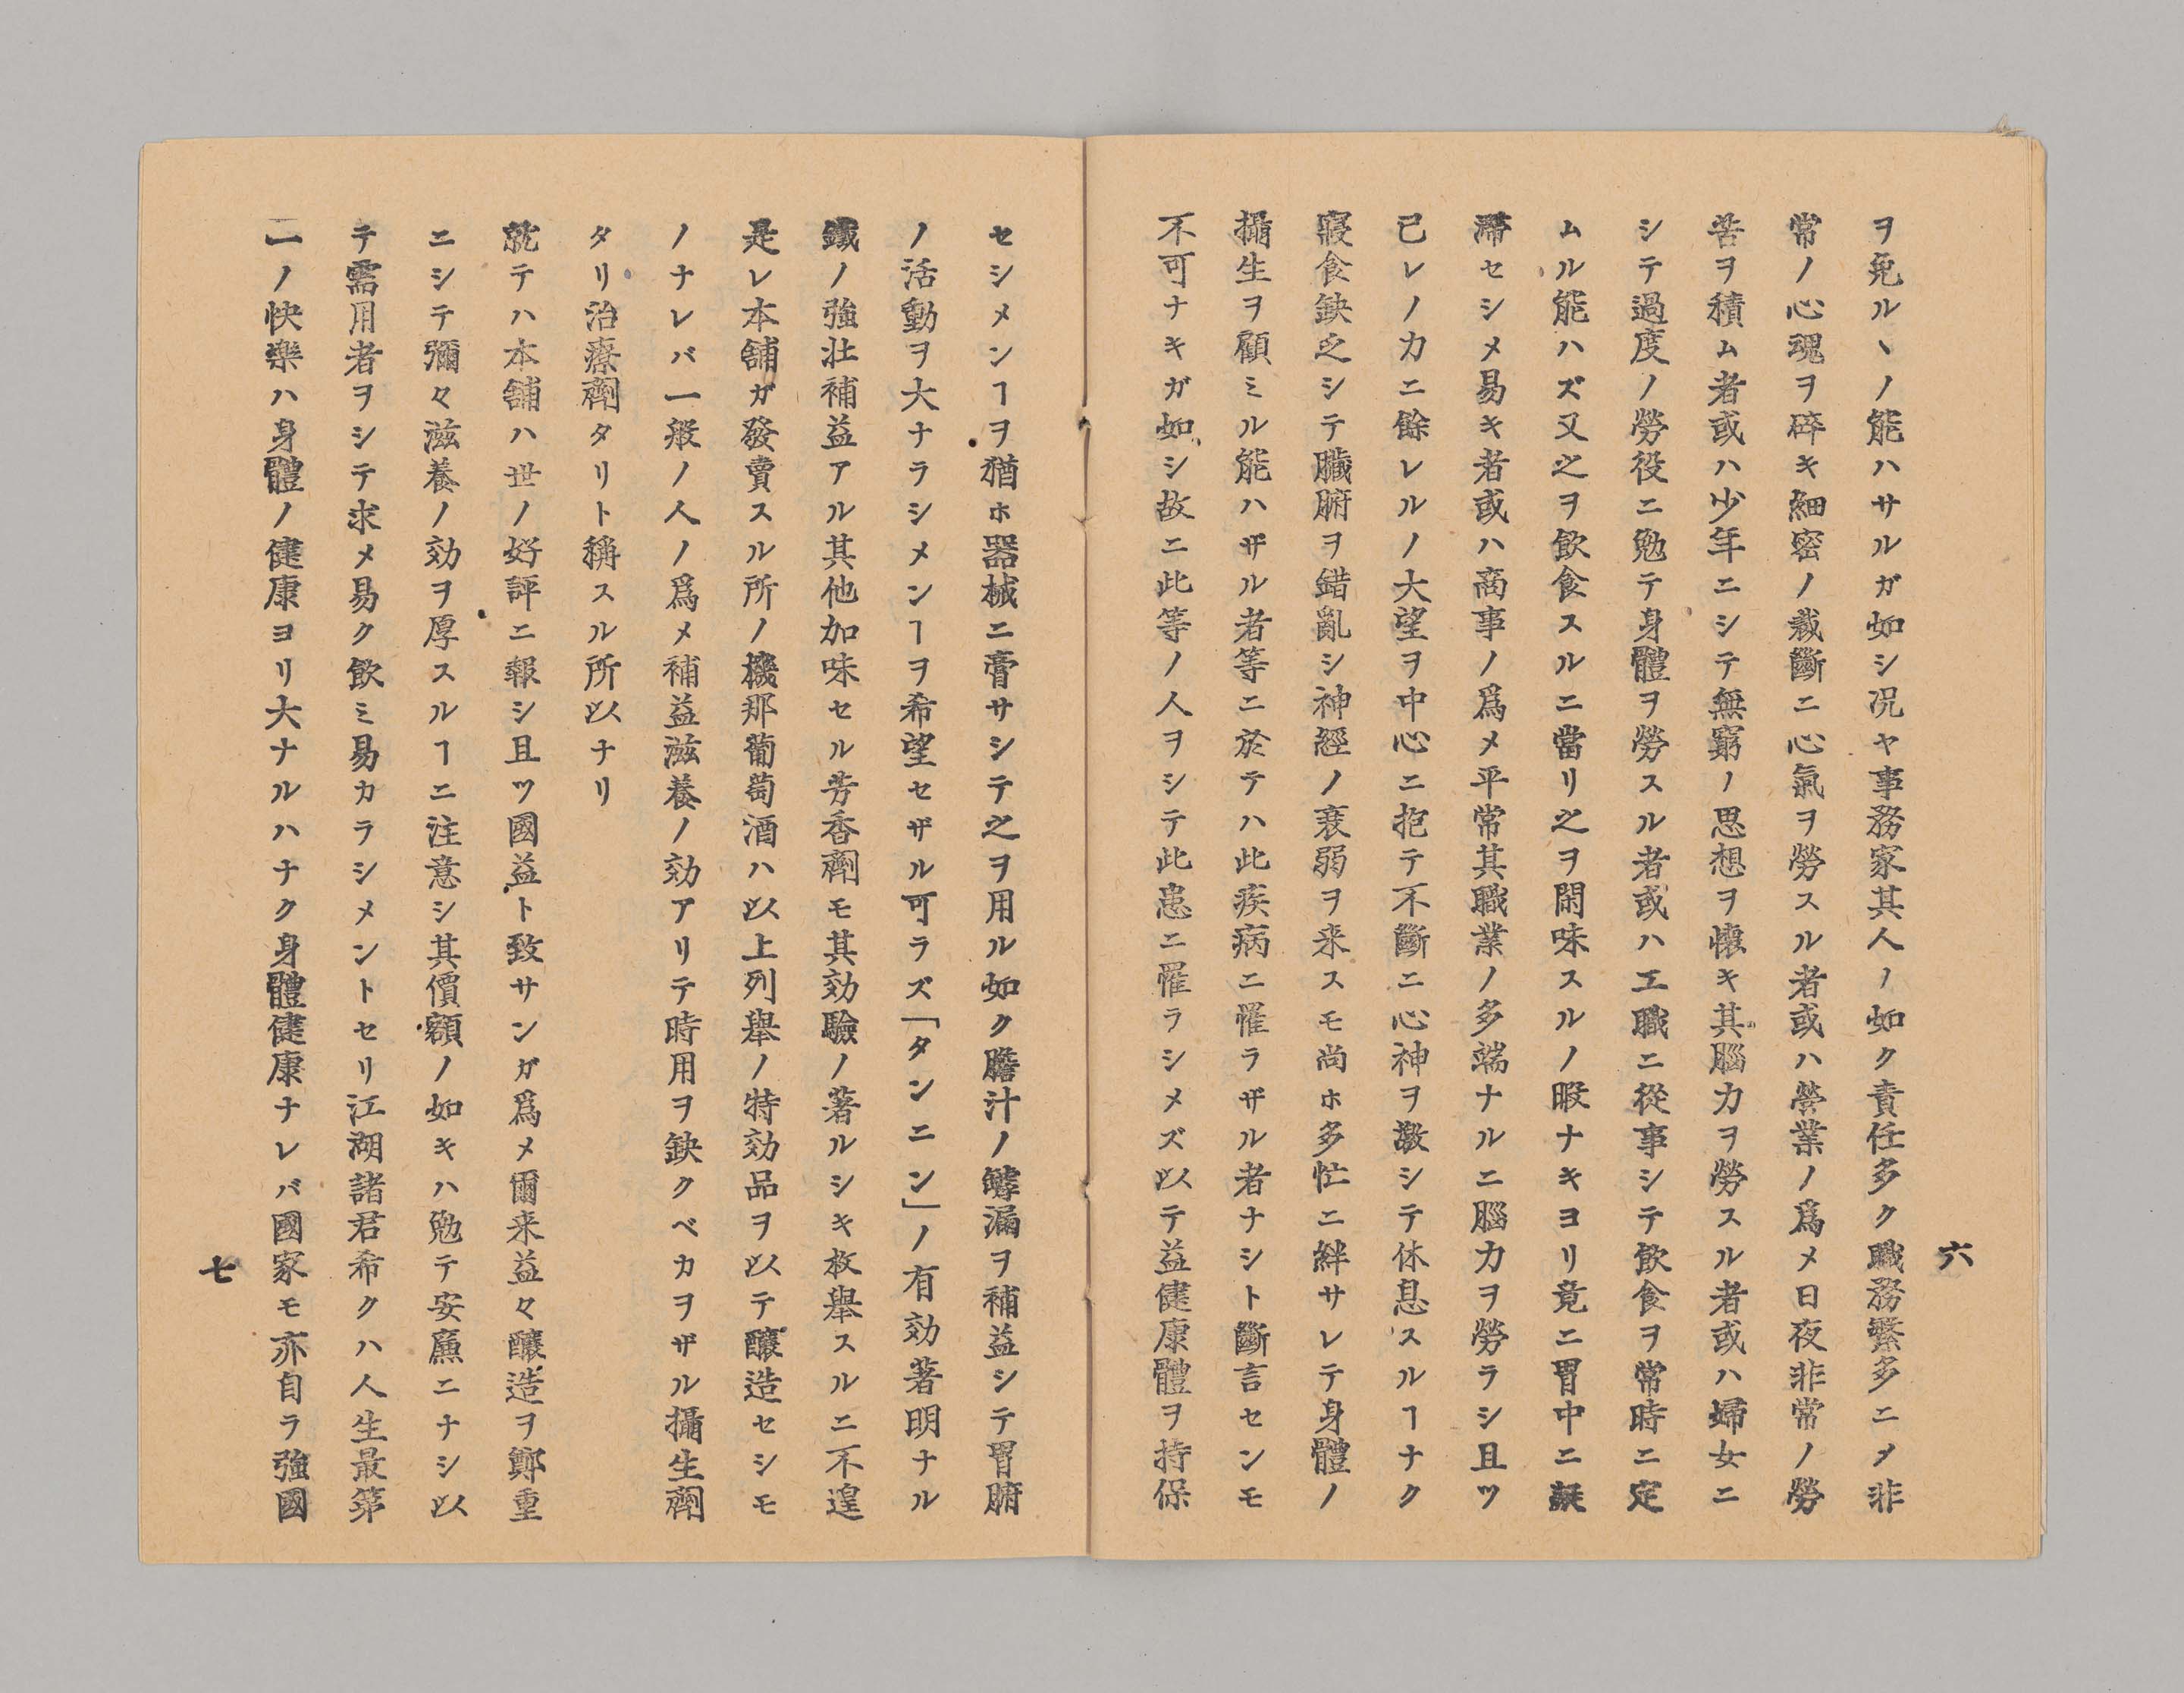 六
ヲ免ルヽノ能ハサルガ如シ况ヤ事務家其人ノ如ク責任多ク職務繁多ニメ非
常ノ心魂ヲ碎キ細密ノ裁斷ニ心氣ヲ勞スル者或ハ營業ノ爲メ日夜非常ノ勞
苦ヲ積ム者或ハ少年ニシテ無窮ノ思想ヲ懷キ其腦力ヲ勞スル者或ハ婦女ニ
シテ過度ノ勞役ニ勉テ身體ヲ勞スル者或ハ工職ニ從事シテ飲食ヲ常時ニ定
ムル能ハズ又之ヲ飲食スルニ當リ之ヲ閑味スルノ暇ナキヨリ竟ニ胃中ニ
滯セシメ易キ者或ハ商事ノ爲メ平常其職業ノ多端ナルニ腦力ヲ勞ラシ且ツ
己レノカニ餘レルノ大望ヲ中心ニ抱テ不斷ニ心神ヲ激シテ休息スルヿナク
寢食缺乏シテ臟腑ヲ錯亂シ神經ノ衰弱ヲ来スモ尚ホ多忙ニ絆サレテ身體ノ
攝生ヲ顧ミル能ハザル者等ニ於テハ此疾病ニ罹ラザル者ナシト斷言センモ
不可ナキガ如シ故ニ此等ノ人ヲシテ此患ニ罹ラシメズ以テ益健康體ヲ持保
セシメンヿヲ猶ホ器械ニ膏サシテ之ヲ用ル如ク膽汁ノ罅漏ヲ補益シテ胃腑
ノ活動ヲ大ナラシメンヿヲ希望セザル可ラズ「タンニン」ノ有効著明ナル
鐵ノ強壯補益アル其他加味セル芳香劑モ其効驗ノ著ルシキ枚舉スルニ不遑
是レ本舗ガ發賣スル所ノ機那葡萄酒ハ以上列舉ノ特効品ヲ以テ釀造セシモ
ノナレバ一般ノ人ノ爲メ補益滋養ノ効アリテ時用ヲ缺クベカヲザル攝生劑
タリ治療劑タリト稱スル所以ナリ
就テハ本舗ハ世ノ好評ニ報シ且ツ國益ト致サンガ爲メ爾来益々釀造ヲ鄭重
ニシテ彌々滋養ノ効ヲ厚スルヿニ注意シ其價額ノ如キハ勉テ安廉ニナシ以
テ需用者ヲシテ求メ易ク飲ミ易カラシメントセリ江湖諸君希クハ人生最第
一ノ快樂ハ身體ノ健康ヨリ大ナルハナク身體健康ナレバ國家モ亦自ラ強國
七